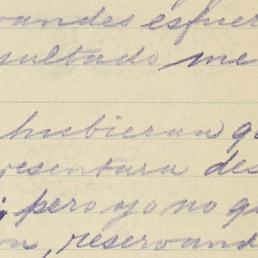 randes esfuer
sultado me
hubieran q
resentara des
pero yo no q
on, reservand